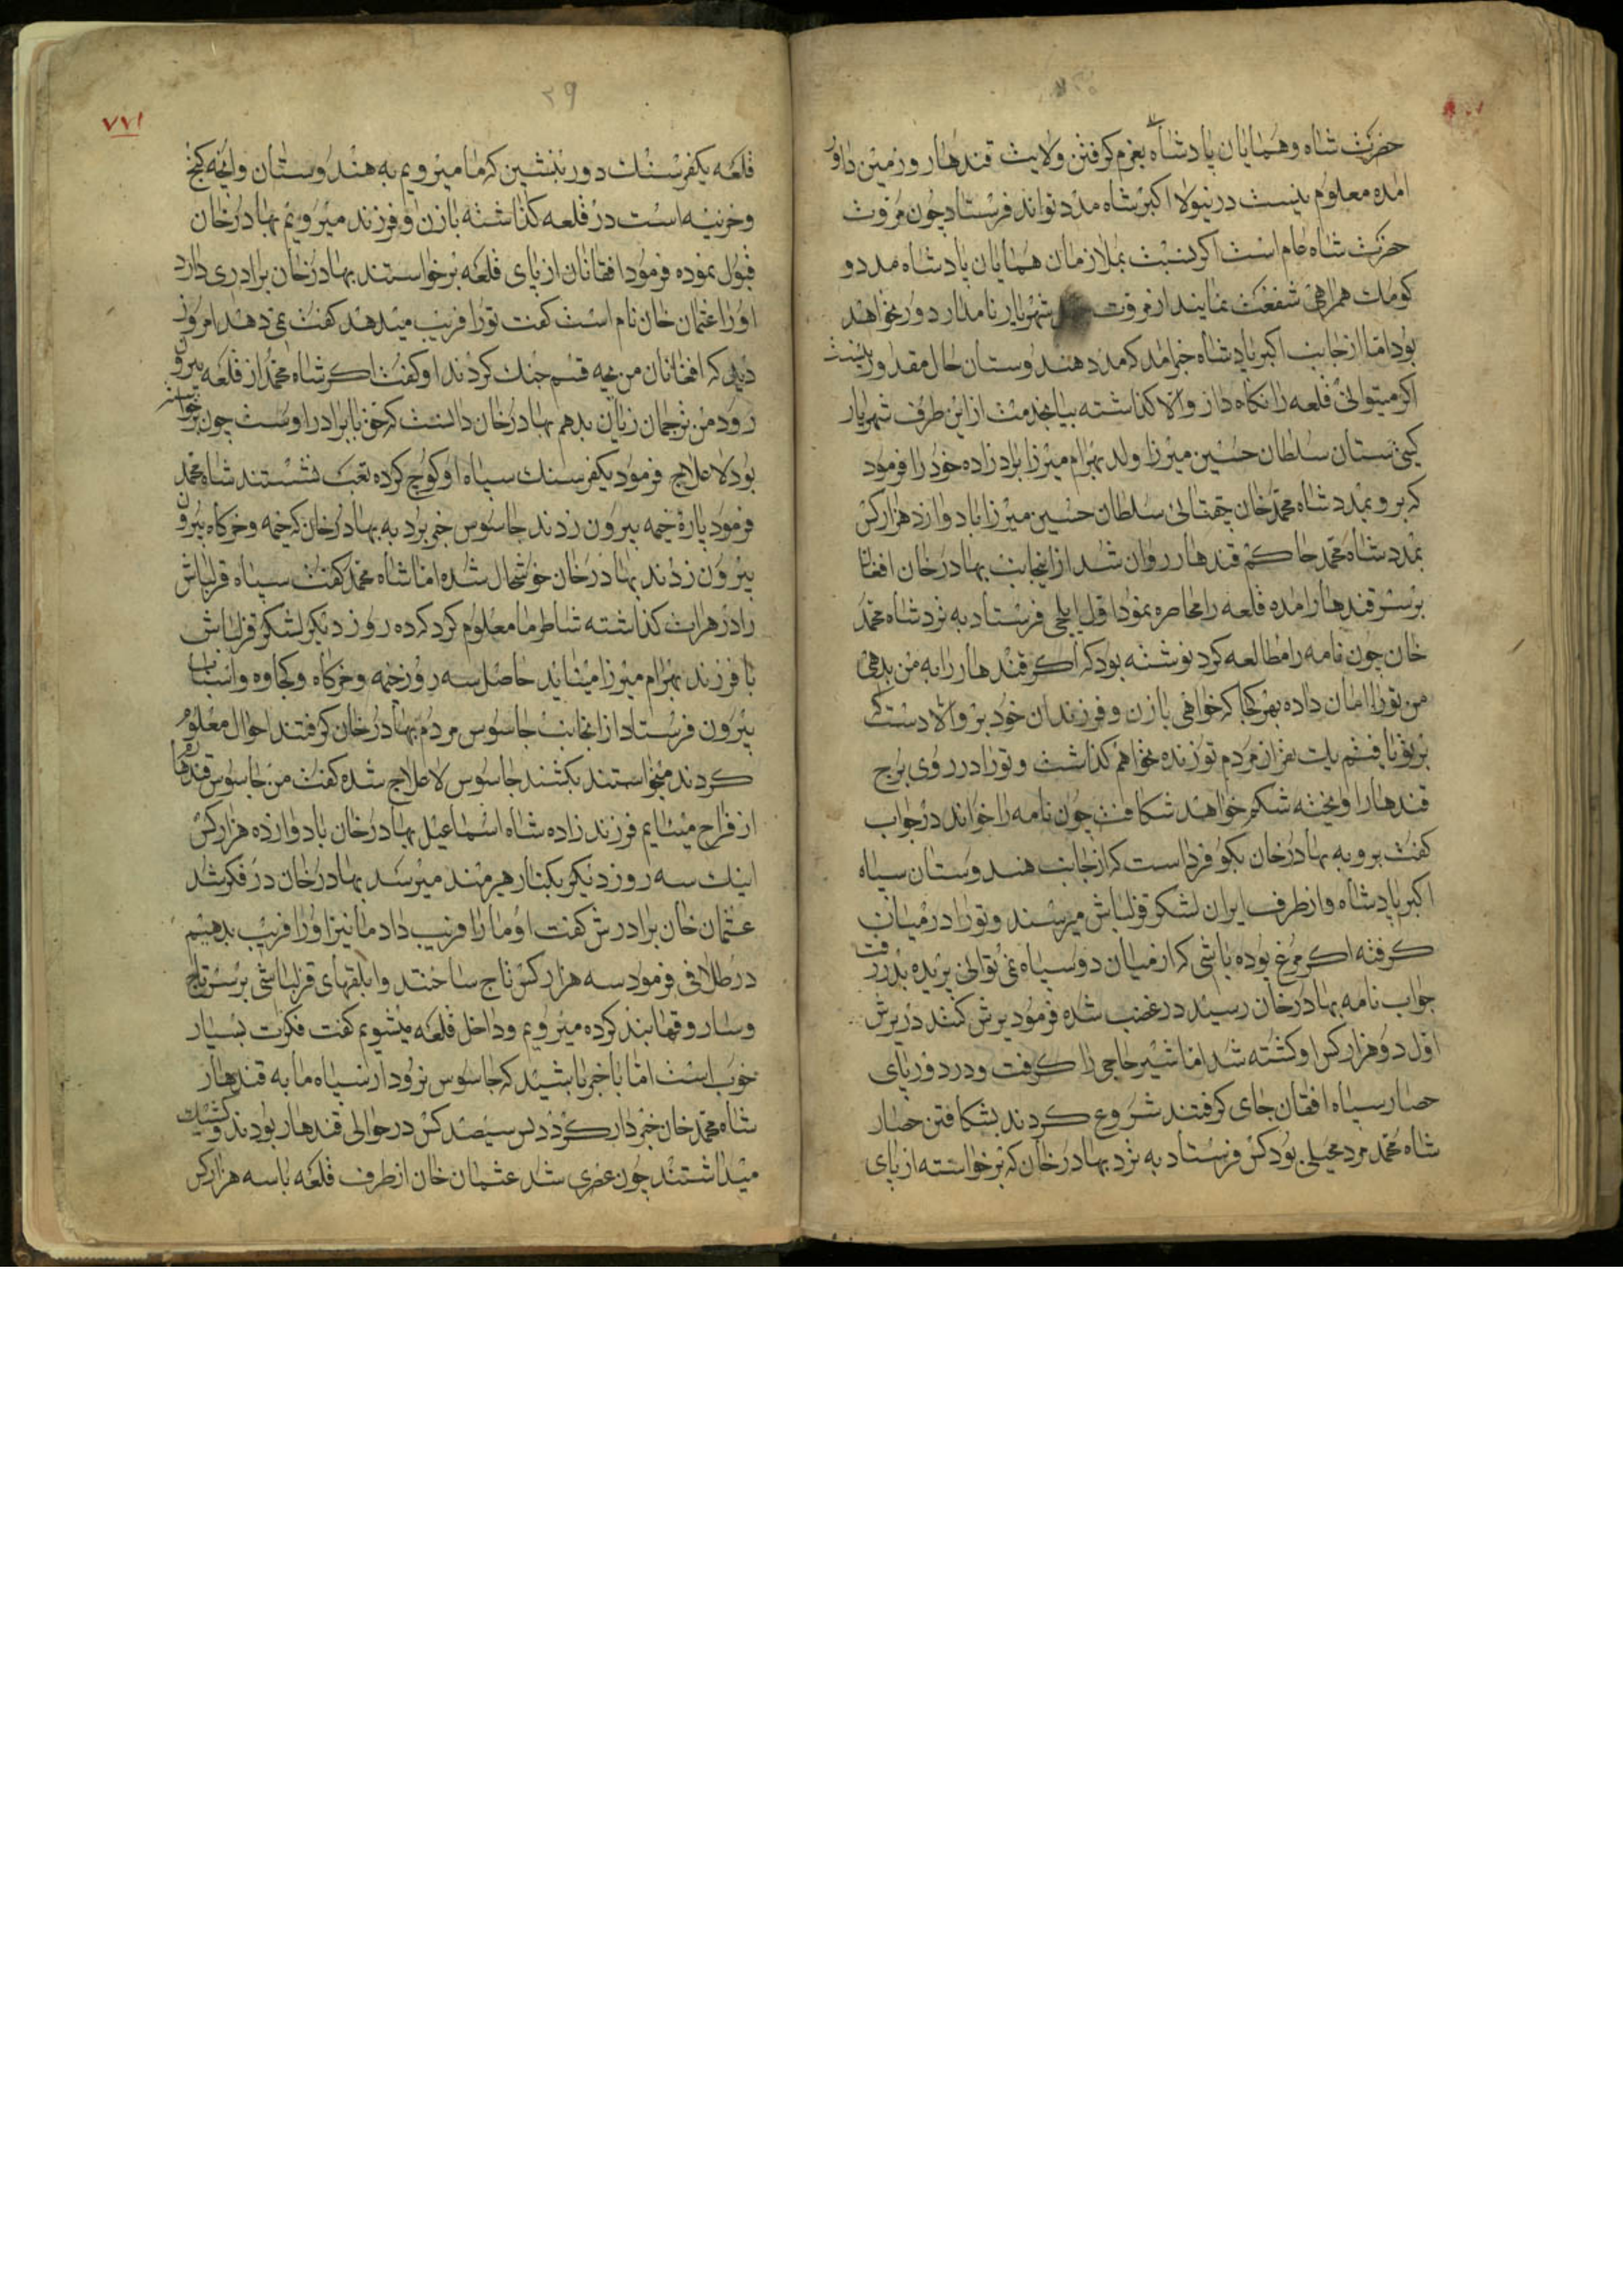 حضرت شاه و همایان پادشاه بعزم کرفتن ولایت قندهار و زمین داور
امده معلوم نیست درینولا اکبر شاه مدد تواند فرستاد چون مروت
حضرت شاه عام است اکر نسبت بملازمان همایان پادشاه مدد و
کومک همراهی شفقت نمایند از مروت شهریار نامدار دور نخواهد
بود اما از جانب اکبر پادشاه خبر امد که مدد هندوستان حال مقدور نیست
اکر میتوانی قلعه را نکاه دار و الا کذاشته بیا بخدمت از این طرف شهریار
کیتی ستان سلطان حسین میرزا ولد بهرام میرزا برادرزاده خود را فرمود
که برو بمدد شاه محمد خان چقتائی سلطان حسین میرزا با دوازد هزار کس
بمدد شاه محمد حاکم قندهار روان شد از انجانب بهادر خان افغان
بر سر قندهار امده قلعه را محاصره نمود اول ایلچی فرستاد به نزد شاه محمد
خان چون نامه را مطالعه کرد نوشته بود که اکر قندهار را به من بدهی
من تورا امان داده بهر کجا که خواهی با زن و فرزندان خود برو و الا دست که
بر تو یافتم یک نفر از مردم تو زنده نخواهم کذاشت و تورا در روی برج
قندهار اویخته شکم خواهند شکافت چون نامه را خواند در جواب
کفت برو به بهادر خان بکو فرداست که از جانب هندوستان سپاه
اکبر پادشاه و از طرف ایران لشکر قزلباش میرسند و تورا در میان
کرفته اکر مرغ بوده باشی که از میان دو سپاه نمی توانی پریده بدر رفت
جواب نامه بهادر خان رسید در غضب شده فرمود یرش کنند در یرش
اول دو هزار کس او کشته شد اما شیر حاجی را کرفت و در دور پای
حصار سپاه افغان جای کرفتند شروع کردند بشکافتن حصار
شاه محمد مرد محیلی بود کس فرستاد به نزد بهادر خان که برخواسته از پای
٣٩
٧٧١
قلعه یکفرسنک دور بنشین که ما میرویم به هندوستان و انچه کنج
و خزینه است در قلعه کذاشته با زن و فرزند میرویم بهادر خان
قبول نموده فرمود افغانان از پای قلعه برخواستند بهادر خان برادری دارد
اورا عثمان خان نام است کفت تورا فریب میدهد کفت نمی دهد امروز
دیدی که افغانان من بچه قسم جنک کردند او کفت اکر شاه محمد از قلعه بیرون
رود من ترجمان زیان بدهم بهادر خان دانست که حق با برادر اوست چون برخواسته
بود لاعلاج فرمود یکفرسنک سپاه او کوچ کرده بعقب نشستند شاه محمد
فرمود پارۀ خیمه بیرون زدند جاسوس خبر برد به بهادر خان که خیمه و خرکاه بیرون
بیرون زدند بهادر خان خوشحال شده اما شاه محمد کفت سپاه قزلباش
را در هرات کذاشته شاطر ما معلوم کرد کرده روز دیکر لشکر قزلباش
با فرزند بهرام میرزا میایند حاصل سه روز خیمه و خرکاه و کجاوه و اسباب
بیرون فرستاد از انجانب جاسوس مردم بهادر خان کرفتند احوال معلوم
کردند میخواستند بکشند جاسوس لاعلاج شده کفت من جاسوس قندهارم
از فراح میایم فرزندزاده شاه اسماعیل بهادر خان با دوازده هزار کس
اینک سه روز دیکر بکنار هیرمند میرسد بهادر خان در فکر شد
عثمان خان برادرش کفت او ما را فریب داد ما نیز اورا فریب بدهیم
در طلافی فرمود سه هزار کس تاج ساختند و ابلقهای قزلباشی بر سر تاج
و ساروقها بند کرده میرویم و داخل قلعه میشویم کفت فکرت بسیار
خوب است اما با خبر باشید که جاسوس نرود از سپاه ما به قندهار
شاه محمد خان خبردار کردد سیصد کس در حوالی قندهار بودند و کشیک
میداشتند چون عصری شد عثمان خان از طرف قلعه با سه هزار کس